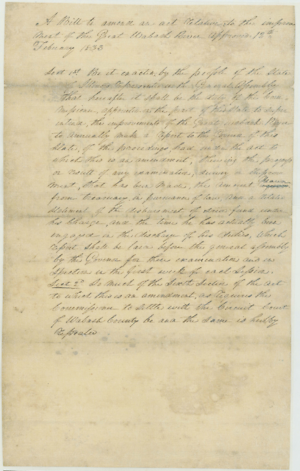 A Bill to amend an act Relative to the improve-
ment of the Great Wabash River Approved 12th
February 1853
Sect 1st Be it enacted by the people of the State
of Illinois Represented in the General Assembly
That hereafter it shall be the duty of the Com-
missioner appointed on the part of this State to superin-
tend the improvement of the Great Wabash River
to annually make a Report to the Governor of this
State, of the proceedings had under the act to
which this is an amendment, showing the progress
or result of any examination, survey or improve-
ment, that has been made, the several
from Treasury in pursuance of law and a
statement of the disbursement of the fund under
his charge, and the time he has actually been
engaged in the discharge of his duties, which
report shall be laid before the general assembly
by the Governor for their examination and in-
spection in the first week of each Session.
Sect 2d So much of the sixth section of the act
to which this is an amendment, as requires the
Commissioner to settle with the Circuit Court
of Wabash County be and the same is hereby
Repealed